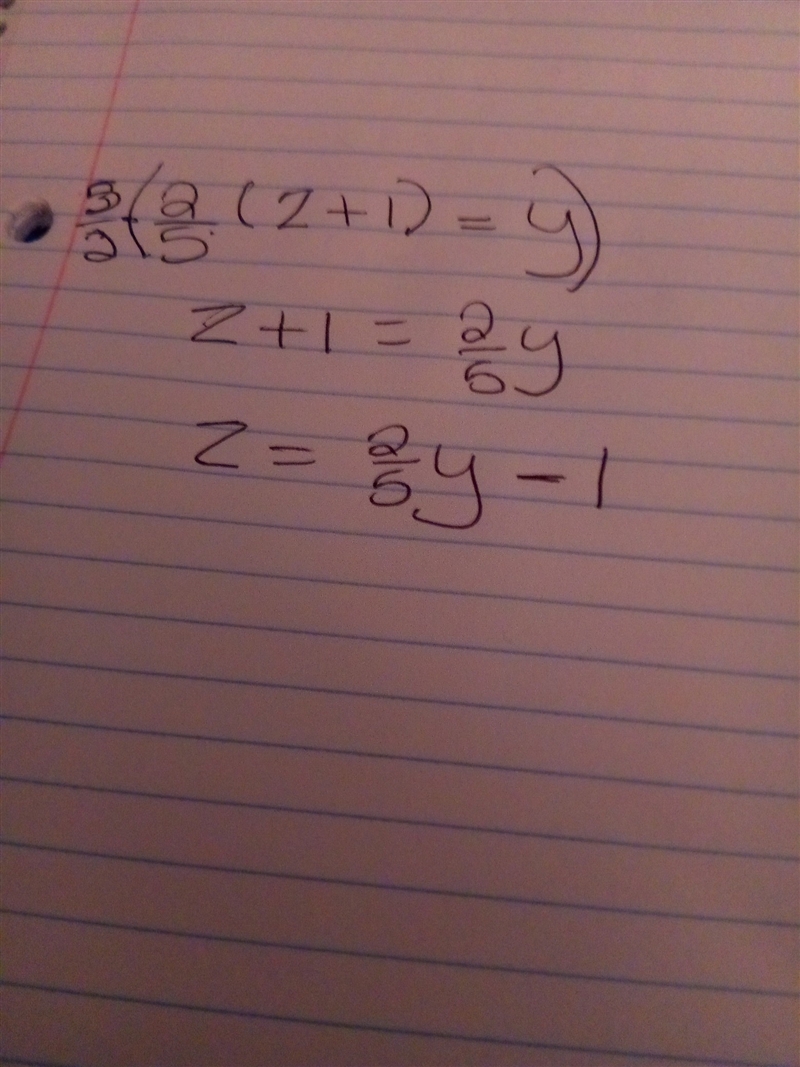 5/2(2/5 (z+1) = y)
z+1 = 2/5y
z = 2/5y - 1